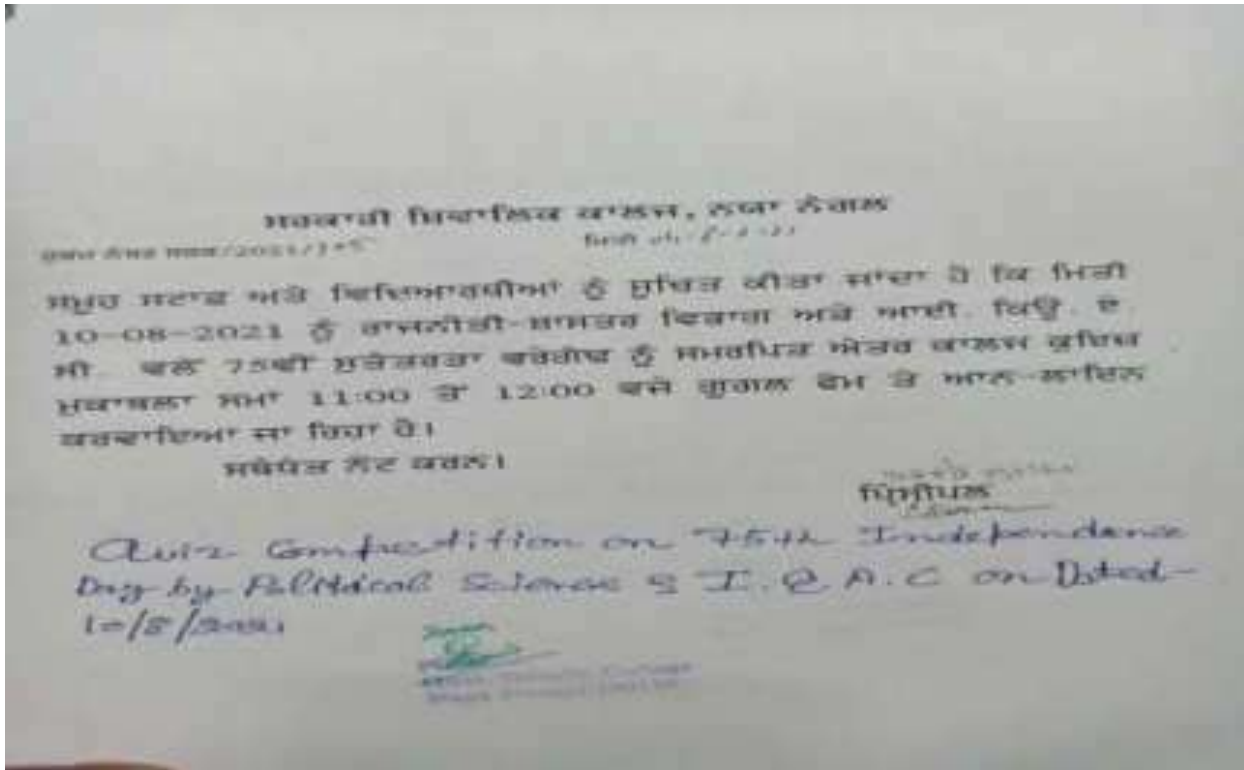 ਸਰਕਾਰੀ ਸ਼ਿਵਾਲਿਕ ਕਾਲਜ, ਨਯਾ ਨੰਗਲ
ਹੁਕਮ ਨੰਬਰ /2021/ ਮਿਤੀ
ਸਮੂਹ ਸਟਾਫ ਅਤੇ ਵਿਦਿਆਰਥੀਆਂ ਨੂੰ ਸੂਚਿਤ ਕੀਤਾ ਜਾਂਦਾ ਹੈ ਕਿ ਮਿਤੀ
10-08-2021 ਨੂੰ ਰਾਜਨੀਤੀ-ਸ਼ਾਸਤਰ ਵਿਭਾਗ ਅਤੇ ਆਈ. ਕਿਉ. ਏ.
ਸੀ. ਵਲੋਂ 75ਵੀਂ ਸੁਤੰਤਰਤਾ ਵਰੇਗੰਢ ਨੂੰ ਸਮਰਪਿਤ ਅੰਤਰ ਕਾਲਜ ਕੁਇਜ਼
ਮੁਕਾਬਲਾ ਸਮਾਂ 11:00 ਤੋਂ 12:00 ਵਜੇ ਗੂਗਲ ਫੋਮ ਤੇ ਆਨ-ਲਾਇਨ
ਕਰਵਾਇਆ ਜਾ ਰਿਹਾ ਹੈ।
ਸਬੰਧਤ ਨੋਟ ਕਰਨ।
ਪ੍ਰਿੰਸੀਪਲ
Quiz Competition on 75th Independence
Day by Political Science & I.Q.A.C on Dated-
10/8/2021